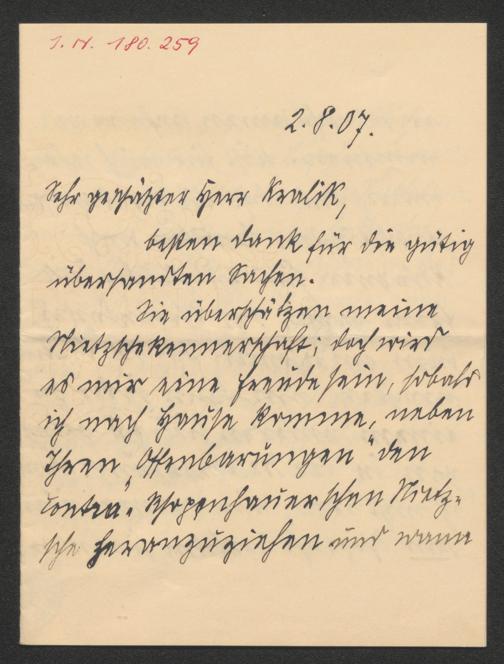 I. N. 180.259
2.8.07.
Sehr geschätzter Herr Kralik,
besten Dank für die gütig
übersandten Sachen.
Sie überschätzen meine
Nietzschekennerschaft; doch wird
es mir eine Freude sein, sobald
ich nach Hause komme, neben
Ihren „Offenbarungen" den
Contra-Schopenhauerschen Nietz-
sche heranzuziehen und wann